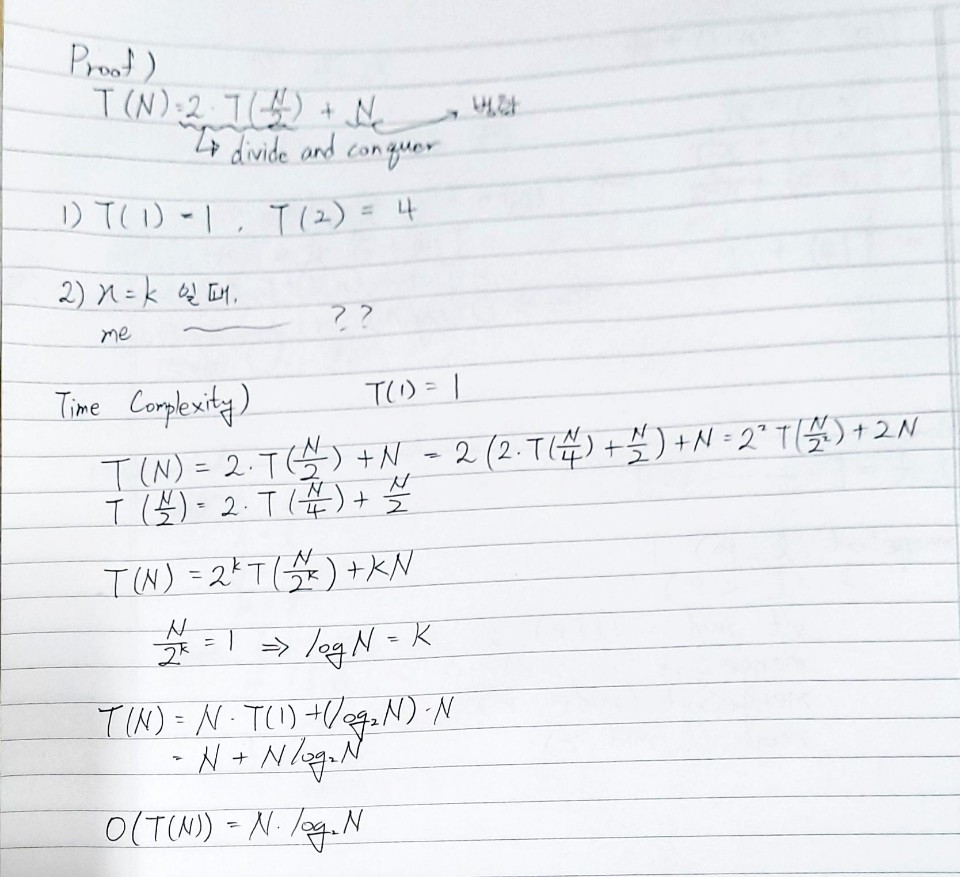 Proof)
T(N) = 2 · T(N/2) + N → 병합
↳ divide and conquer
1) T(1) = 1, T(2) = 4
2) n=k 일 때,
me ―― ??
Time Complexity) T(1) = 1
T(N) = 2·T(N/2) + N = 2(2·T(N/4) + N/2) + N = 2²T(N/2²) + 2N
T(N/2) = 2·T(N/4) + N/2
T(N) = 2ᵏT(N/2ᵏ) + kN
N/2ᵏ = 1 ⇒ log N = k
T(N) = N · T(1) + (log₂N)·N
= N + N log₂N
O(T(N)) = N·log₂N